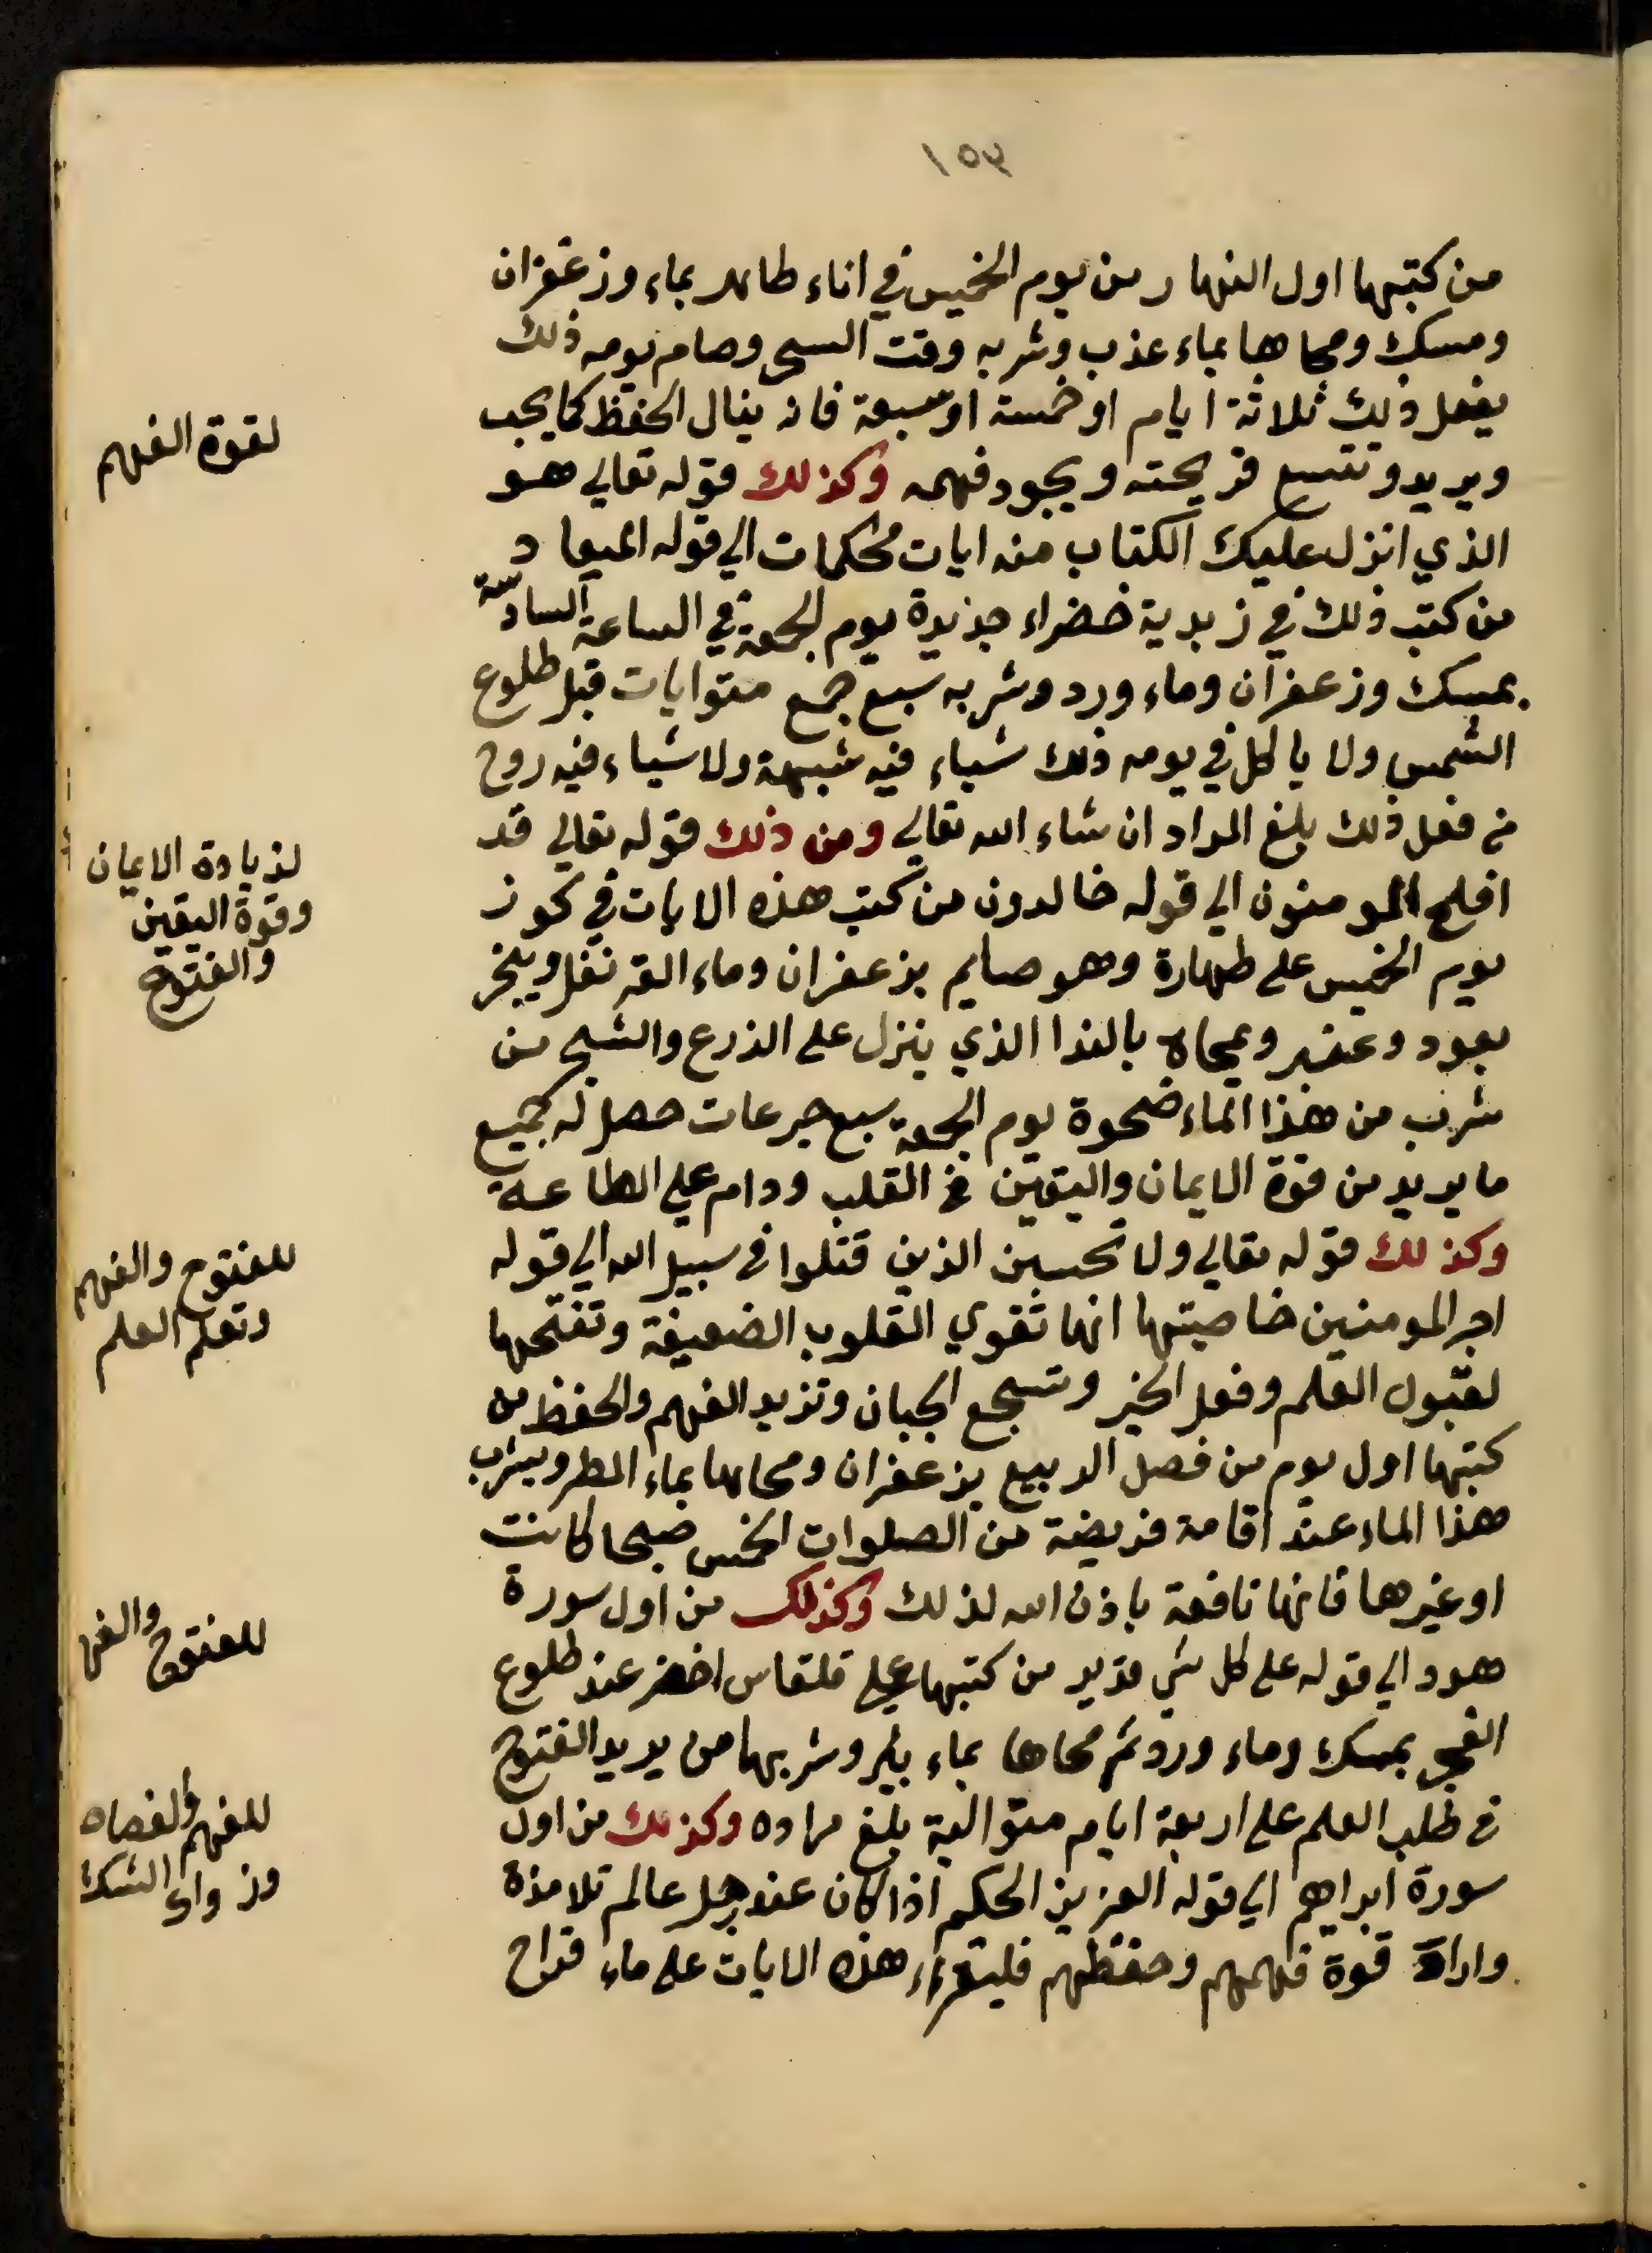 ١٥٣
من كتبها اول النهار من يوم الخميس في اناء طاهر بماء وزعفران
ومسك ومحاها بماء عذب وشربه وقت السحر وصام يومه ذلك
يفعل ذلك ثلاثة ايام او خمسة او سبعة فانه ينال الحفظ كما يحب
لقوة الفهم
ويريد وتتسع قريحته ويجود فهمه وكذلك قوله تعالي هو
الذي انزل عليك الكتاب منه ايات محكمات الي قوله الميعاد
من كتب ذلك في زبدية خضراء جديدة يوم الجمعة في الساعة السادسة
بمسك وزعفران وماء ورد وشربه سبع جمع متوايات قبل طلوع
الشمس ولا ياكل في يومه ذلك شياء فيه شبهة ولا شياء فيه روح
من فعل ذلك بلغ المراد ان شاء الله تعالي ومن ذلك قوله تعالي قد
لزيادة الايمان
وقوة اليقين
والفتوح
افلح المومنون الي قوله خالدون من كتب هذه الايات في كوز
يوم الخميس على طهارة وهو صايم بزعفران وماء القرنفل ويبخر
بعود وعنبر ويمحاه بالندا الذي ينزل على الزرع والشجر من
شرب من هذا الماء ضحوة يوم الجمعة سبع جرعات حصل له جميع
ما يريد من قوة الايمان واليقين في القلب ودام علي الطاعة
وكذلك قوله تعالي ولا تحسبن الذين قتلوا في سبيل الله الي قوله
للفتوح والفهم
وتعلم العلم
اجر المومنين خاصيتها انها تقوي القلوب الضعيفة وتفتحها
لقبول العلم وفعل الخير وتشجع الجبان وتزيد الفهم والحفظ من
كتبها اول يوم من فصل الربيع بزعفران ومحاها بماء المطر ويشرب
هذا الماء عند اقامة فريضة من الصلوات الخمس صبحا كانت
او غيرها فانها نافعة باذن الله لذلك وكذلك من اول سورة
للفتوح والفهم
هود الي قوله على كل شي قدير من كتبها علي قلقاس اخضر عند طلوع
الفجر بمسك وماء ورد ثم محاها بماء بئر وشربها من يريد الفتوح
في طلب العلم على اربعة ايام متوالية بلغ مراده وكذلك من اول
للفهم والفصاه
وزوال الشك
سورة ابراهيم الي قوله العزيز الحكيم اذا كان عند رجل عالم تلامذة
واراد قوة فهمهم وحفظهم فليقراء هذه الايات على ماء قراح